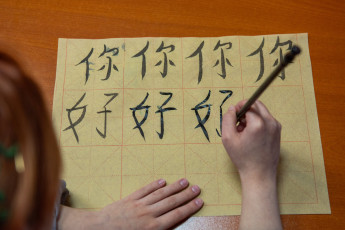 你你你你
好好好